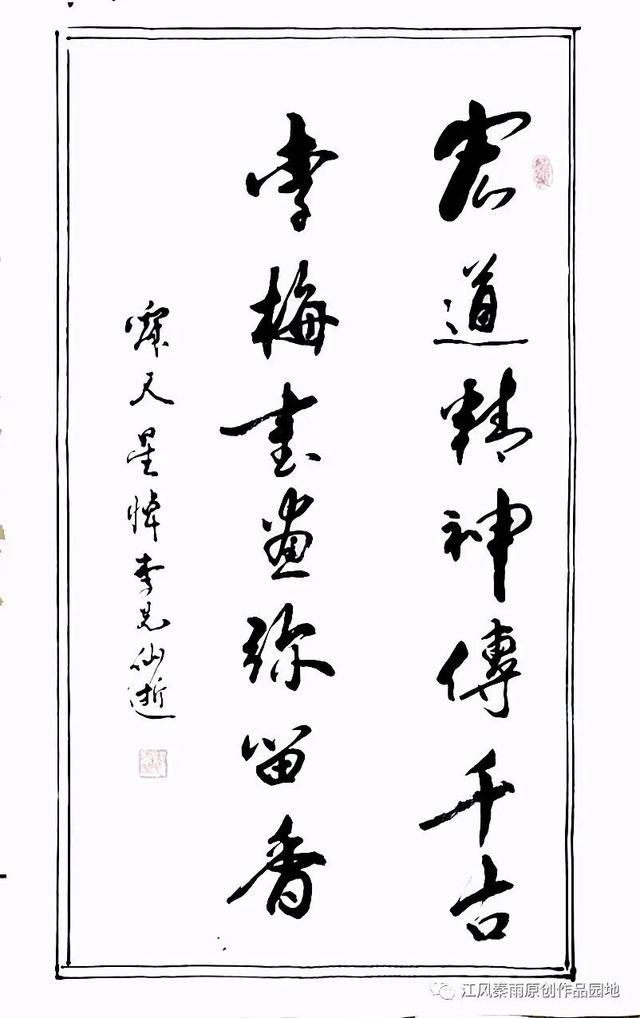 宏道精神傳千古
李梅书画弥留香
星悼李兄仙逝
江风秦雨原创作品园地